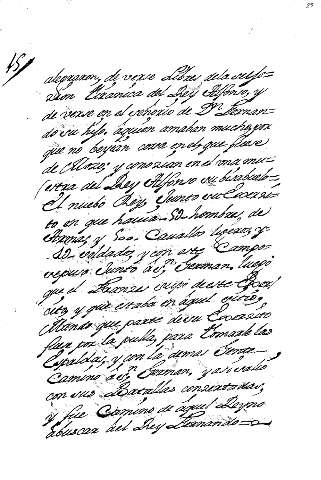 45/
alegraron, de verse Libres de la suje=
cion tiranica del Rey Alfonso, y
de verse en el señorio de Dn. Fernan=
do su hijo, aquien amaban mucho, por
que no bevian cosa en el que fuese
de Moro; y conozian en el
del Rey Alfonso su
El nuebo Rey Junto su Exerzi=
to en que havia hombres, de
Armas, y 500. Cavallos ligeros, y
soldados, y con este Campo
se puso Junto à Sn. German. luego
que el supo de este Exer=
cito, y que estaba en aquel sitio,
Mando que parte de su Exercito
fuese por la pulla, para tomarle las
Espaldas, y con la demas Jente
Camino à Sn. German, y asi salio
con sus Batallas conzertadas,
y fue Camino de aquel Reyno
abuscar del Rey Fernando